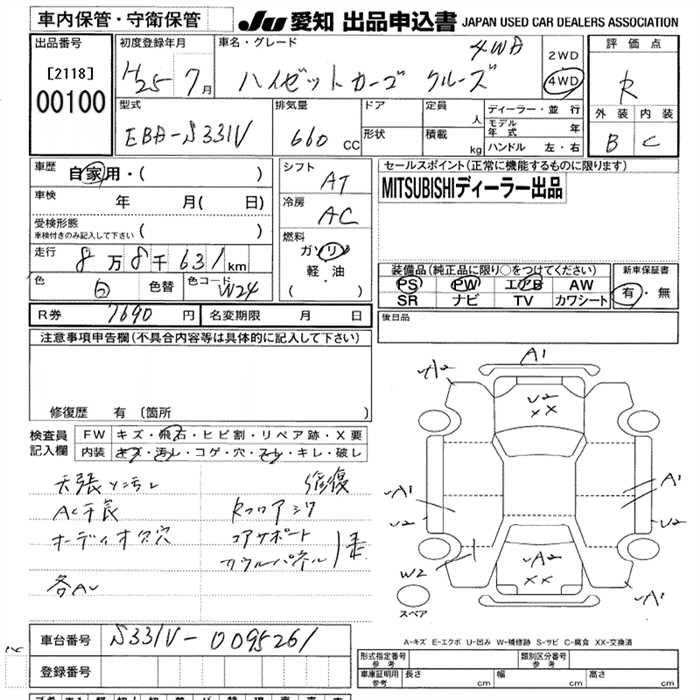 車内保管・守衛保管
JU 愛知 出品申込書 JAPAN USED CAR DEALERS ASSOCIATION
出品番号
[2118]
00100
初度登録年月
H25 7月
車名・グレード
ハイゼットカーゴ クルーズ
4WD
2WD
4WD
評価点
R
外装 内装
B C
型式
EBD-S331V
排気量
660 CC
ドア
形状
定員 人
積載 kg
ディーラー・並行
モデル年式 年
ハンドル 左・右
車歴 自家用・( )
車検 年 月( 日)
受検形態
車検付きのみ記入して下さい ( )
走行 8万8千631km
色 白 色替 色コード W24
シフト
AT
冷房
AC
燃料
ガソリン
軽・油
( ・ )
セールスポイント(正常に機能するものに限ります)
MITSUBISHIディーラー出品
装備品(純正品に限り○をつけてください)
PS PW エアB AW
SR ナビ TV カワシート
新車保証書
有・無
R券 7690円 名変期限 月 日
後日品
注意事項申告欄(不具合内容等は具体的に記入して下さい)
修復歴 有 〔箇所 〕
検査員記入欄
FW キズ・飛石・ヒビ割・リペア跡・X要
内装 キズ・汚レ・コゲ・穴・スレ・キレ・破レ
天張
AC不良
オーディオ欠穴
各AU
修復
Rフロアジワ
コアサポート
カウルパネル
A1
U2
XX
A1
U2
A1
U2
W2
A2
XX
スペア
A-キズ E-エクボ U-凹み W-補修跡 S-サビ C-腐食 XX-交換済
車台番号 S331V-0095261
登録番号
形式指定番号 参考
類別区分番号 参考
車庫証明用 参考 長さ cm 幅 cm 高さ cm